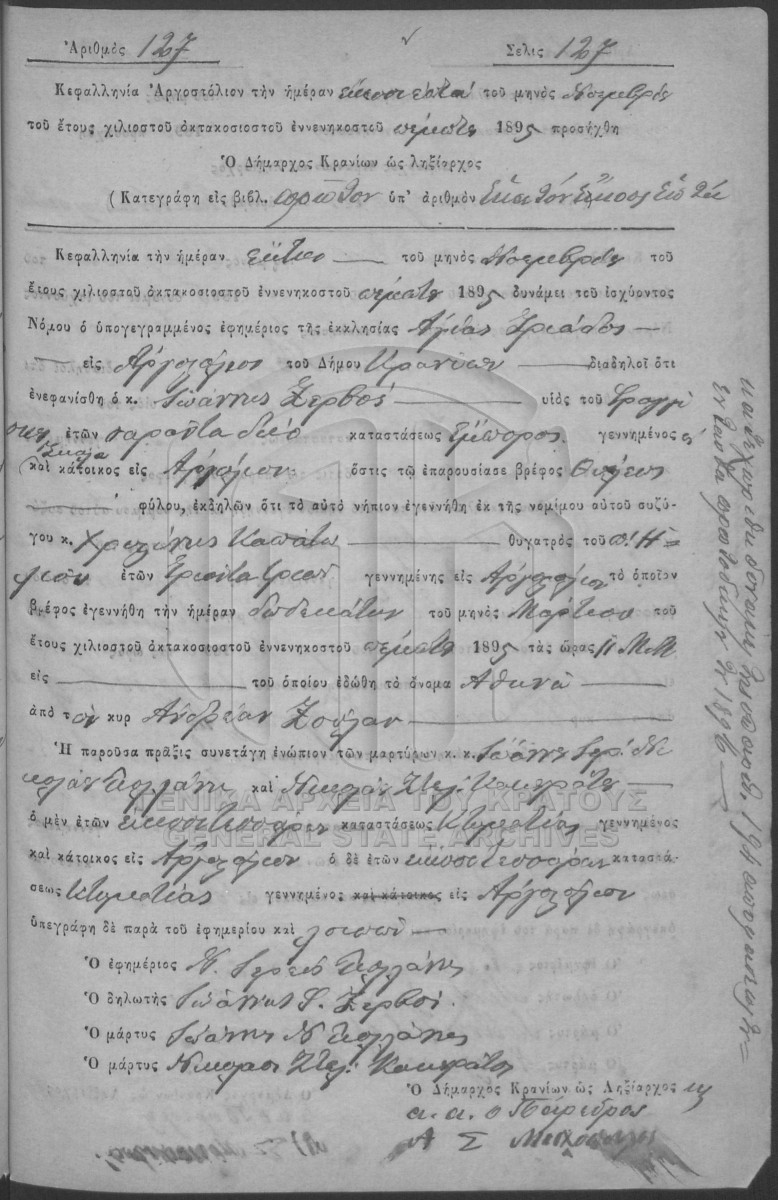 Ἀριθμὸς 127 Σελὶς 127
Κεφαλληνία Ἀργοστόλιον τὴν ἡμέραν εἰκοσι ἑπτά τοῦ μηνὸς Νοεμβρίου
τοῦ ἔτους χιλιοστοῦ ὀκτακοσιοστοῦ ἐννενηκοστοῦ πέμπτου 1895 προσήχθη
Ὁ Δήμαρχος Κρανίων ὡς ληξίαρχος
(Κατεγράφη εἰς βιβλ. πρῶτον ὑπ' ἀριθμὸν Ἑκατόν Εἴκοσι Ἑπτά
Κεφαλληνία τὴν ἡμέραν ἕκτην τοῦ μηνὸς Νοεμβρίου τοῦ
ἔτους χιλιοστοῦ ὀκτακοσιοστοῦ ἐννενηκοστοῦ πέμπτου 1895 δυνάμει τοῦ ἰσχύοντος
Νόμου ὁ ὑπογεγραμμένος ἐφημέριος τῆς ἐκκλησίας Ἁγίας Τριάδος
εἰς Ἀργοστόλιον τοῦ Δήμου Κρανίων διαδηλοῖ ὅτι
ἐνεφανίσθη ὁ κ. Ἰωάννης Ζερβός υἱὸς τοῦ Φραγγί
σκου ἐτῶν σαράντα δύο καταστάσεως Ἔμπορος γεννημένος
καὶ κάτοικος εἰς Ἀργοστόλιον ὅστις τῷ ἐπαρουσίασε βρέφος θήλεος
φύλου, ἐκδηλῶν ὅτι τὸ αὐτὸ νήπιον ἐγεννήθη ἐκ τῆς νομίμου αὐτοῦ συζύ-
γου κ. θυγατρὸς τοῦ π. Η-
ἐτῶν Τριάντα τριῶν γεννημένης εἰς Ἀργοστόλιον τὸ ὁποῖον
βρέφος ἐγεννήθη τὴν ἡμέραν δωδεκάτην τοῦ μηνὸς Μαρτίου τοῦ
ἔτους χιλιοστοῦ ὀκτακοσιοστοῦ ἐννενηκοστοῦ πέμπτου 1895 τὰς ὥρας 11 Μ.Μ
εἰς τοῦ ὁποίου ἐδώθη τὸ ὄνομα Ἀθηνᾶ
ἀπὸ τὸν κυρ Ἀνδρέαν
Ἡ παροῦσα πρᾶξις συνετάγη ἐνώπιον τῶν μαρτύρων κ. κ. Ἰωάννη Νι
κολάου καὶ Νικολάου Στελ.
ΓΕΝΙΚΑ ΑΡΧΕΙΑ ΤΟΥ ΚΡΑΤΟΥΣ
ὁ μὲν ἐτῶν εἰκοσιτεσσάρων καταστάσεως Κτηματίας γεννημένος
GENERAL STATE ARCHIVES
καὶ κάτοικος εἰς Ἀργοστόλιον ὁ δὲ ἐτῶν εἰκοσιτεσσάρων καταστά-
σεως Κτηματίας γεννημένος καὶ κάτοικος εἰς Ἀργοστόλιον
ὑπεγράφη δὲ παρὰ τοῦ ἐφημερίου καὶ λοιπῶν
Ὁ ἐφημέριος Ν. Ἱερεύς
Ὁ δηλωτὴς Ἰωάννης Φ. Ζερβός.
Ὁ μάρτυς Ἰωάννης Ν
Ὁ μάρτυς Νικόλαος Στελ.
Ὁ Δήμαρχος Κρανίων ὡς Ληξίαρχος
α.α. ὁ Πάρεδρος
Α Σ